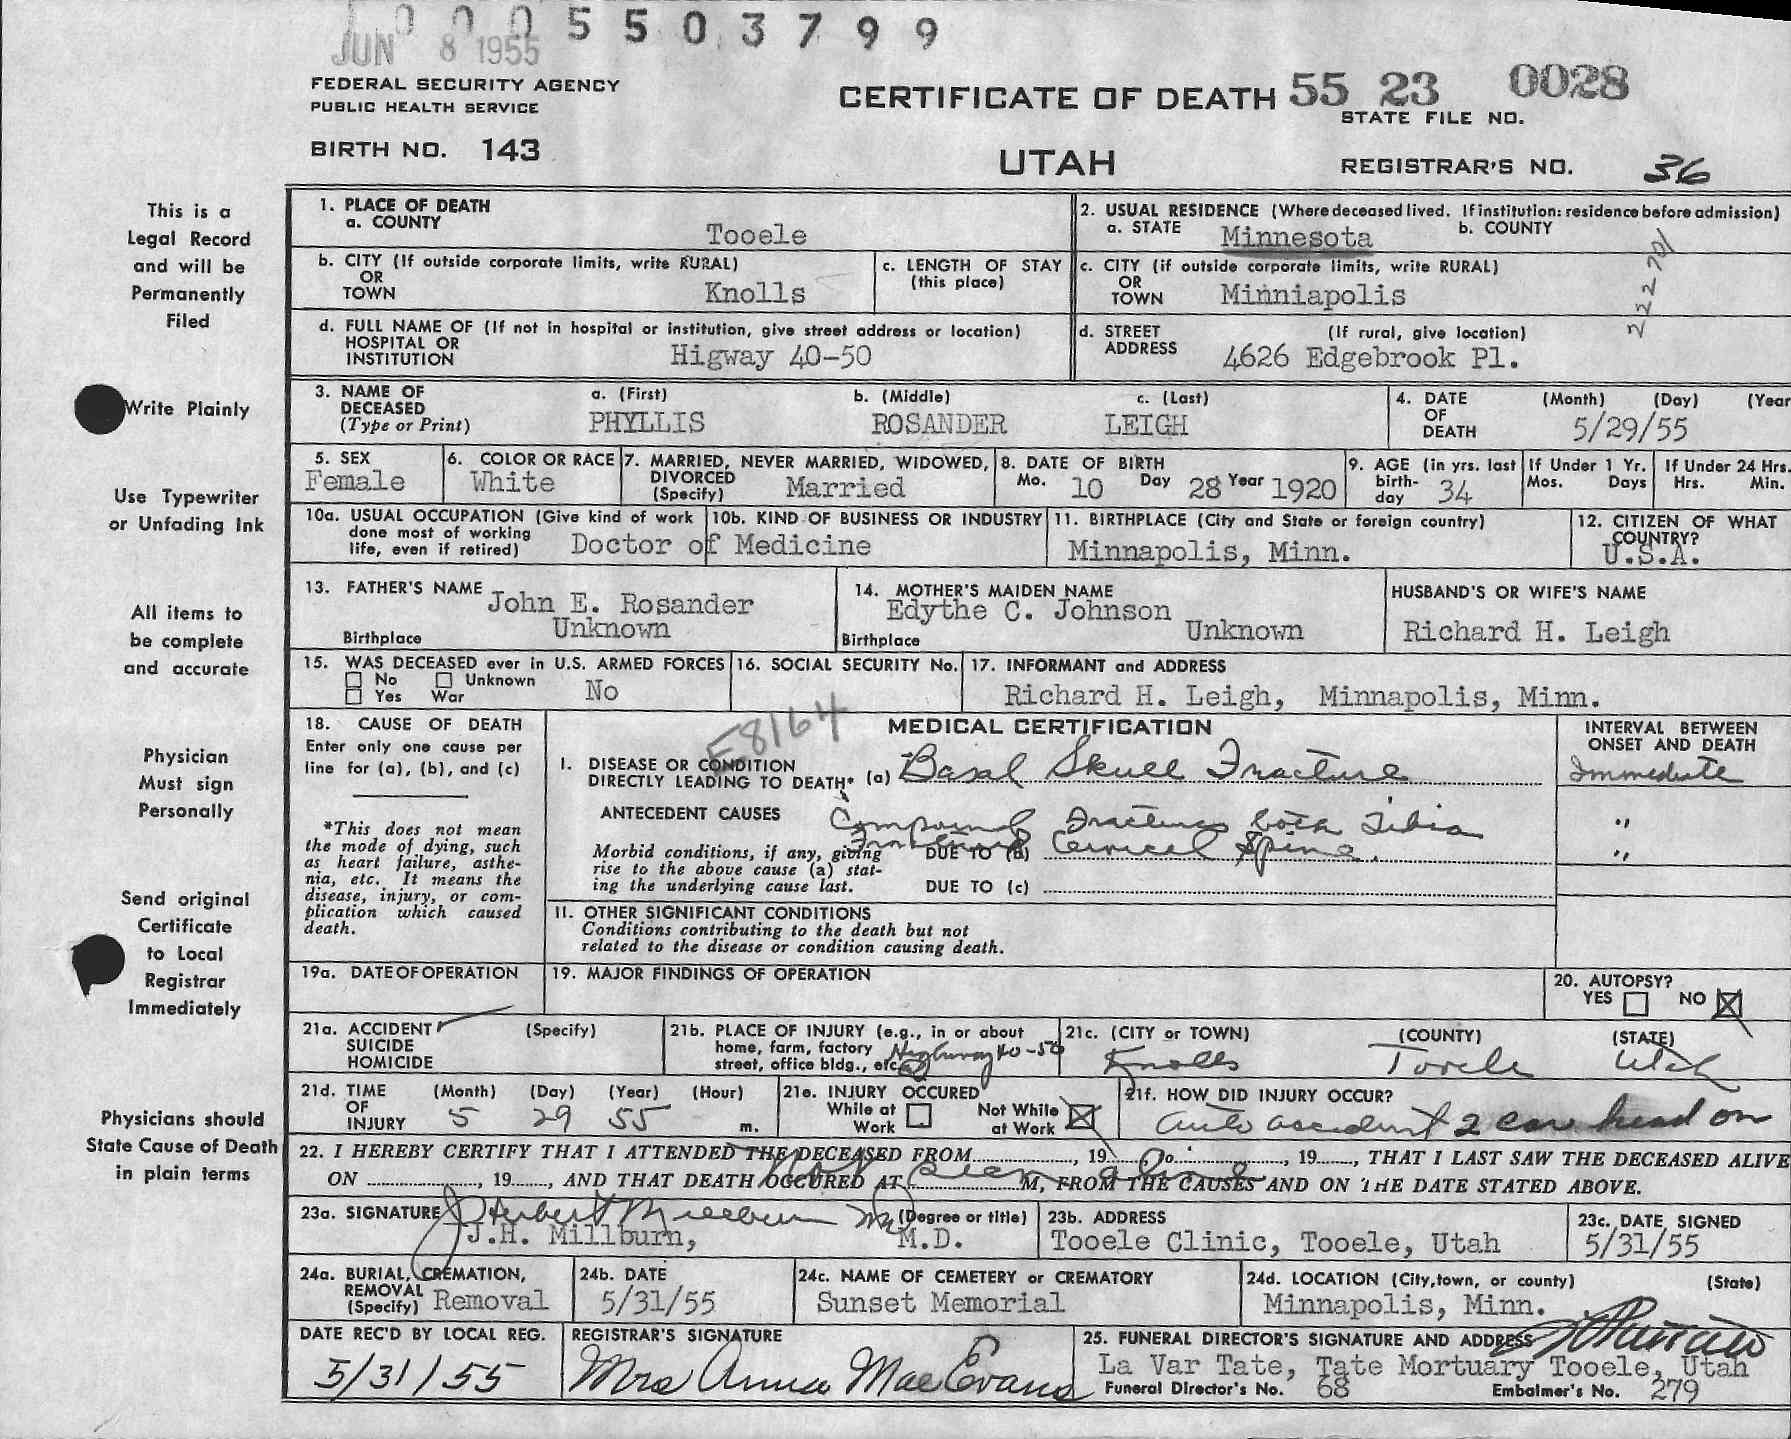 0 0 0 5 5 0 3 7 9 9
JUN 8 1955
FEDERAL SECURITY AGENCY
PUBLIC HEALTH SERVICE
BIRTH NO. 143
CERTIFICATE OF DEATH 55 23 0028
STATE FILE NO.
UTAH
REGISTRAR'S NO. 36
This is a
Legal Record
and will be
Permanently
Filed
Write Plainly
Use Typewriter
or Unfading Ink
All items to
be complete
and accurate
Physician
Must sign
Personally
Send original
Certificate
to Local
Registrar
Immediately
Physicians should
State Cause of Death
in plain terms
1. PLACE OF DEATH
a. COUNTY
Tooele
2. USUAL RESIDENCE (Where deceased lived. If institution: residence before admission)
a. STATE Minnesota b. COUNTY
b. CITY (If outside corporate limits, write RURAL)
OR
TOWN Knolls
c. LENGTH OF STAY
(this place)
c. CITY (if outside corporate limits, write RURAL)
OR
TOWN Minniapolis
d. FULL NAME OF (If not in hospital or institution, give street address or location)
HOSPITAL OR
INSTITUTION Higway 40-50
d. STREET (If rural, give location)
ADDRESS 4626 Edgebrook Pl.
3. NAME OF
DECEASED
(Type or Print)
a. (First) b. (Middle) c. (Last)
PHYLLIS ROSANDER LEIGH
4. DATE (Month) (Day) (Year
OF
DEATH 5/29/55
5. SEX
Female
6. COLOR OR RACE
White
7. MARRIED, NEVER MARRIED, WIDOWED,
DIVORCED
(Specify) Married
8. DATE OF BIRTH
Mo. 10 Day 28 Year 1920
9. AGE (in yrs. last
birth-
day 34
If Under 1 Yr.
Mos. Days
If Under 24 Hrs.
Hrs. Min.
10a. USUAL OCCUPATION (Give kind of work
done most of working
life, even if retired)
10b. KIND OF BUSINESS OR INDUSTRY
Doctor of Medicine
11. BIRTHPLACE (City and State or foreign country)
Minnapolis, Minn.
12. CITIZEN OF WHAT
COUNTRY?
U.S.A.
13. FATHER'S NAME John E. Rosander
Birthplace Unknown
14. MOTHER'S MAIDEN NAME
Edythe C. Johnson
Birthplace Unknown
HUSBAND'S OR WIFE'S NAME
Richard H. Leigh
15. WAS DECEASED ever in U.S. ARMED FORCES
No Unknown
Yes War
No
16. SOCIAL SECURITY No.
17. INFORMANT and ADDRESS
Richard H. Leigh, Minnapolis, Minn.
18. CAUSE OF DEATH
Enter only one cause per
line for (a), (b), and (c)
*This does not mean
the mode of dying, such
as heart failure, asthe-
nia, etc. It means the
disease, injury, or com-
plication which caused
death.
E8164
MEDICAL CERTIFICATION
I. DISEASE OR CONDITION
DIRECTLY LEADING TO DEATH* (a) Basal Skull Fracture
ANTECEDENT CAUSES Compound Fractures both Tibia
Morbid conditions, if any, giving
rise to the above cause (a) stat-
ing the underlying cause last.
DUE TO (b) Cervical Spine
DUE TO (c)
INTERVAL BETWEEN
ONSET AND DEATH
Immediate
"
"
II. OTHER SIGNIFICANT CONDITIONS
Conditions contributing to the death but not
related to the disease or condition causing death.
19a. DATE OF OPERATION
19. MAJOR FINDINGS OF OPERATION
20. AUTOPSY?
YES NO
21a. ACCIDENT (Specify)
SUICIDE
HOMICIDE
21b. PLACE OF INJURY (e.g., in or about
home, farm, factory
street, office bldg., etc.)
Highway 40-50
21c. (CITY or TOWN) (COUNTY) (STATE)
Knolls Tooele Utah
21d. TIME (Month) (Day) (Year) (Hour)
OF
INJURY 5 29 55 m.
21e. INJURY OCCURED
While at Work
Not While at Work
21f. HOW DID INJURY OCCUR?
Auto accident 2 car head on
22. I HEREBY CERTIFY THAT I ATTENDED THE DECEASED FROM, 19, To, 19, THAT I LAST SAW THE DECEASED ALIVE
ON, 19, AND THAT DEATH OCCURED AT M, FROM THE CAUSES AND ON THE DATE STATED ABOVE.
Not seen alive
23a. SIGNATURE J Herbert Millburn MD (Degree or title)
J.H. Millburn, M.D.
23b. ADDRESS
Tooele Clinic, Tooele, Utah
23c. DATE SIGNED
5/31/55
24a. BURIAL, CREMATION,
REMOVAL
(Specify) Removal
24b. DATE
5/31/55
24c. NAME OF CEMETERY or CREMATORY
Sunset Memorial
24d. LOCATION (City, town, or county) (State)
Minnapolis, Minn.
DATE REC'D BY LOCAL REG.
5/31/55
REGISTRAR'S SIGNATURE
Mrs Anna Mae Evans
25. FUNERAL DIRECTOR'S SIGNATURE AND ADDRESS
La Var Tate, Tate Mortuary Tooele, Utah
Funeral Director's No. 68 Embalmer's No. 279